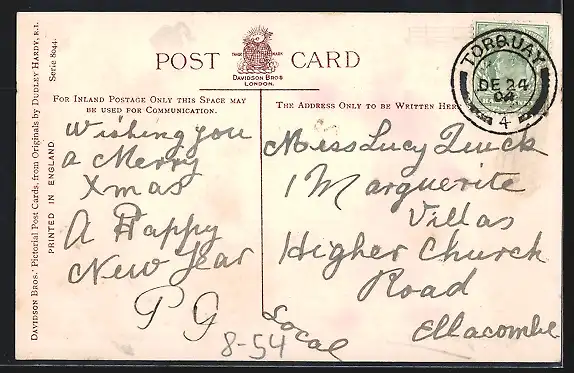 POST CARD
TRADE MARK
DAVIDSON BROS
LONDON.
FOR INLAND POSTAGE ONLY THIS SPACE MAY
BE USED FOR COMMUNICATION.
THE ADDRESS ONLY TO BE WRITTEN HERE
Wishing you
a Merry
Xmas
A Happy
New Year
P G
8-54
Miss Lucy Quick
1 Marguerite
Villas
Higher Church
Road
Ellacombe
Local
TORQUAY
DE 24
04
4
DAVIDSON BROS.' Pictorial Post Cards, from Originals by DUDLEY HARDY, R.I.
Serie 8044.
PRINTED IN ENGLAND